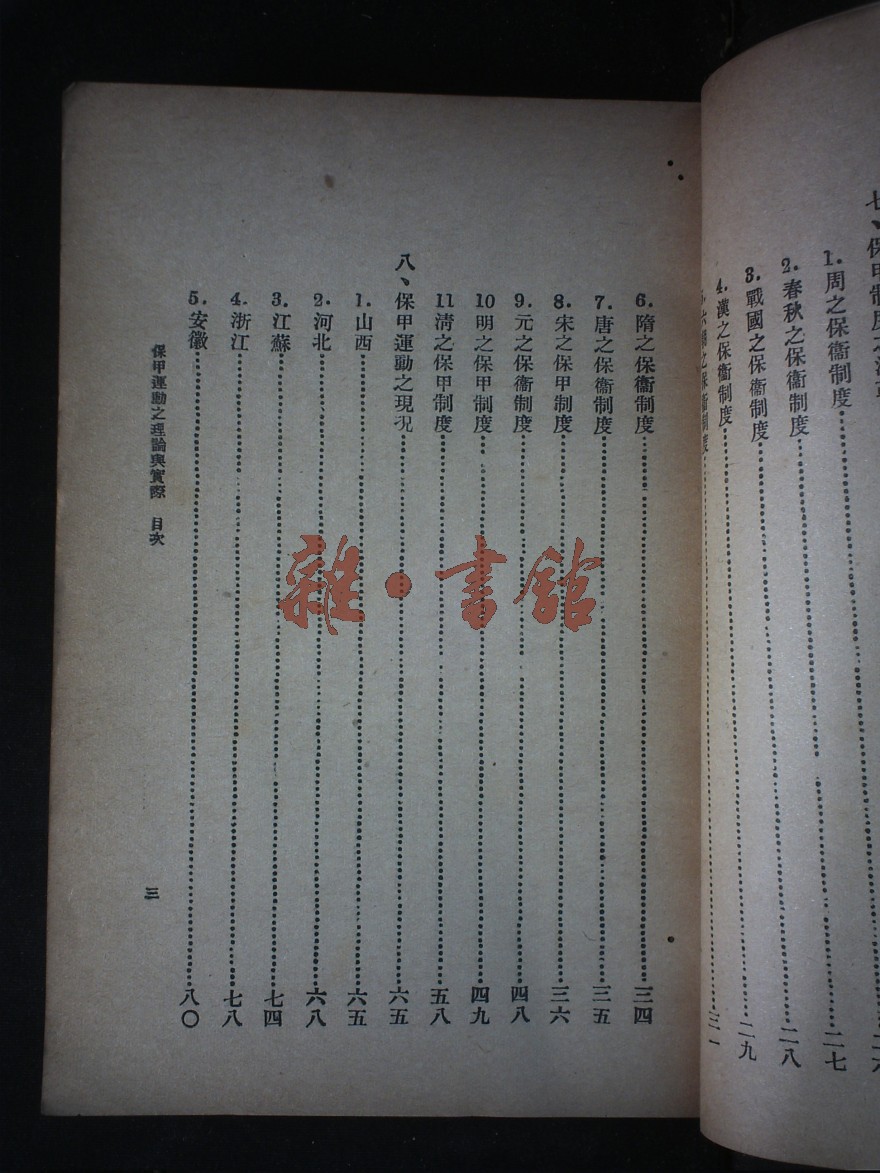 七、保甲制度之
1.周之保衞制度 二七
2.春秋之保衞制度 二八
3.戰國之保衞制度 二九
4.漢之保衞制度 三一
之保衞制度
6.隋之保衞制度 三四
7.唐之保衞制度 三五
8.宋之保甲制度 三六
9.元之保衞制度 四八
10明之保甲制度 四九
11清之保甲制度 五八
八、保甲運動之現況 六五
1.山西 六五
2.河北 六八
3.江蘇 七四
4.浙江 七八
5.安徽 八〇
保甲運動之理論與實際 目次
三
雜·書館